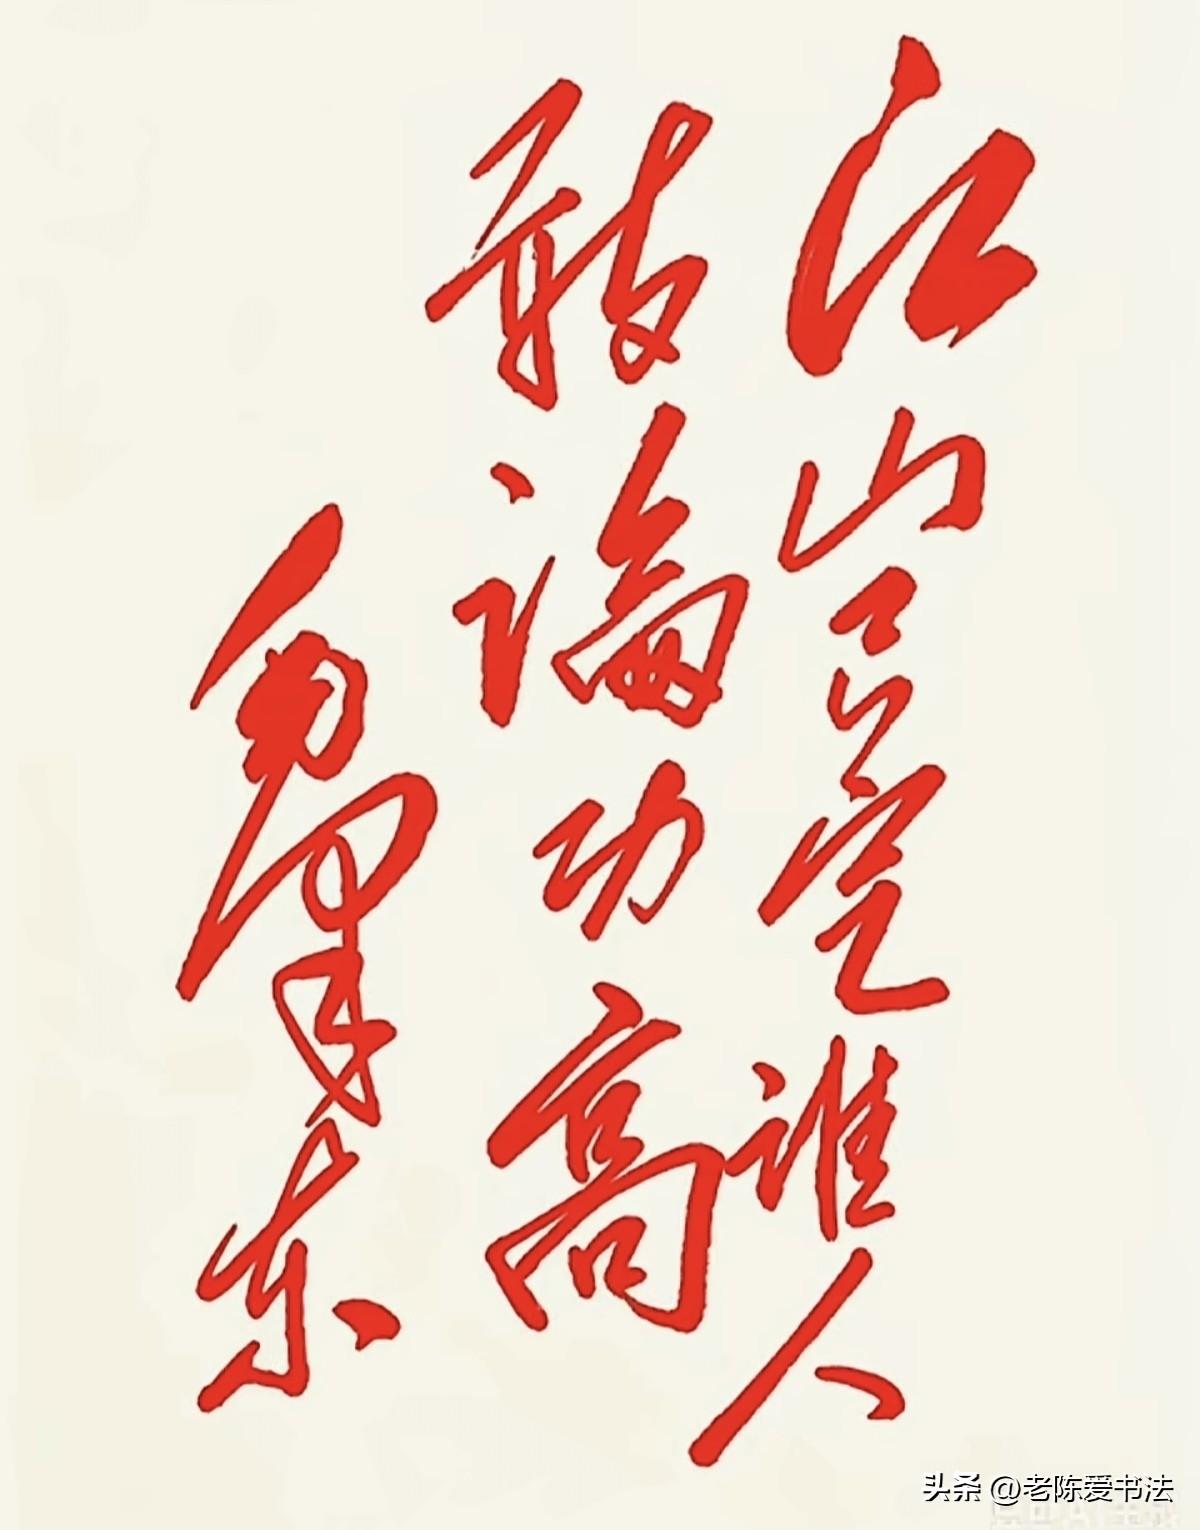 江山谁人
敢論功高
毛泽东
头条 @老陈爱书法